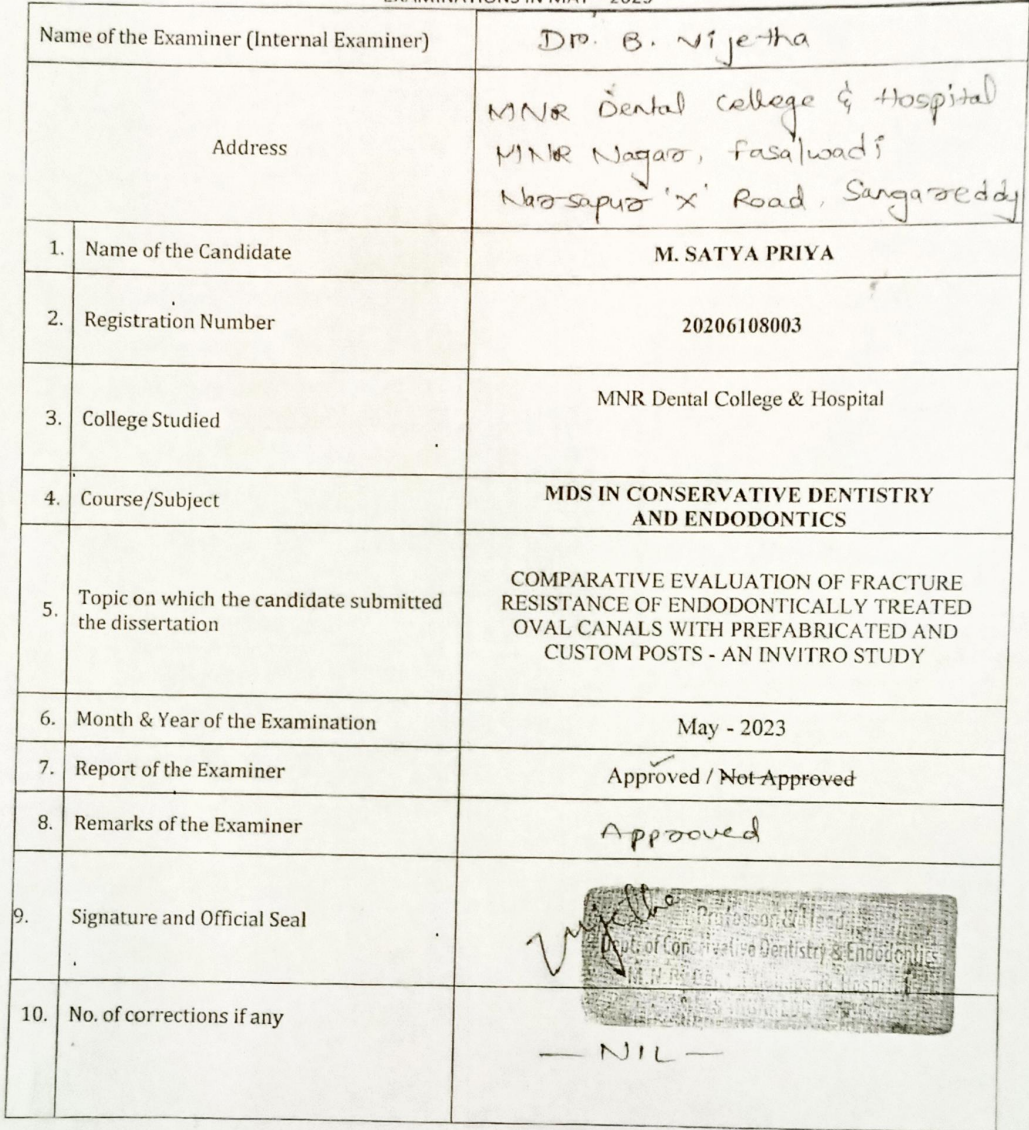 EXAMINATIONS IN MAY - 2023
Name of the Examiner (Internal Examiner)
Dr. B. Vijetha
Address
MNR Dental College & Hospital
MNR Nagar, Fasalwadi
Narsapur 'X' Road, Sangareddy
1. Name of the Candidate
M. SATYA PRIYA
2. Registration Number
20206108003
3. College Studied
MNR Dental College & Hospital
4. Course/Subject
MDS IN CONSERVATIVE DENTISTRY
AND ENDODONTICS
5. Topic on which the candidate submitted
the dissertation
COMPARATIVE EVALUATION OF FRACTURE
RESISTANCE OF ENDODONTICALLY TREATED
OVAL CANALS WITH PREFABRICATED AND
CUSTOM POSTS - AN INVITRO STUDY
6. Month & Year of the Examination
May - 2023
7. Report of the Examiner
Approved / Not Approved
8. Remarks of the Examiner
Approved
9. Signature and Official Seal
Vijetha
Professor & Head
Dept. of Conservative Dentistry & Endodontics
M.N.R. Dental College & Hospital
SANGAREDDY
10. No. of corrections if any
— NIL —